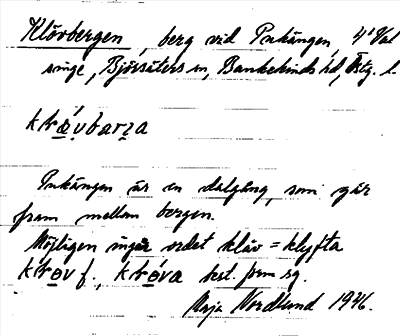 Klövbergen, berg vid Pukängen, 4' Val
singe, Björsäters sn, Bankekinds hd, Östg. l.
Pukängen är en dalgång, som går
fram mellan bergen.
Möjligen ingår ordet klöv = klyfta
f., best. form sg.
Maja Nordlund 1946.